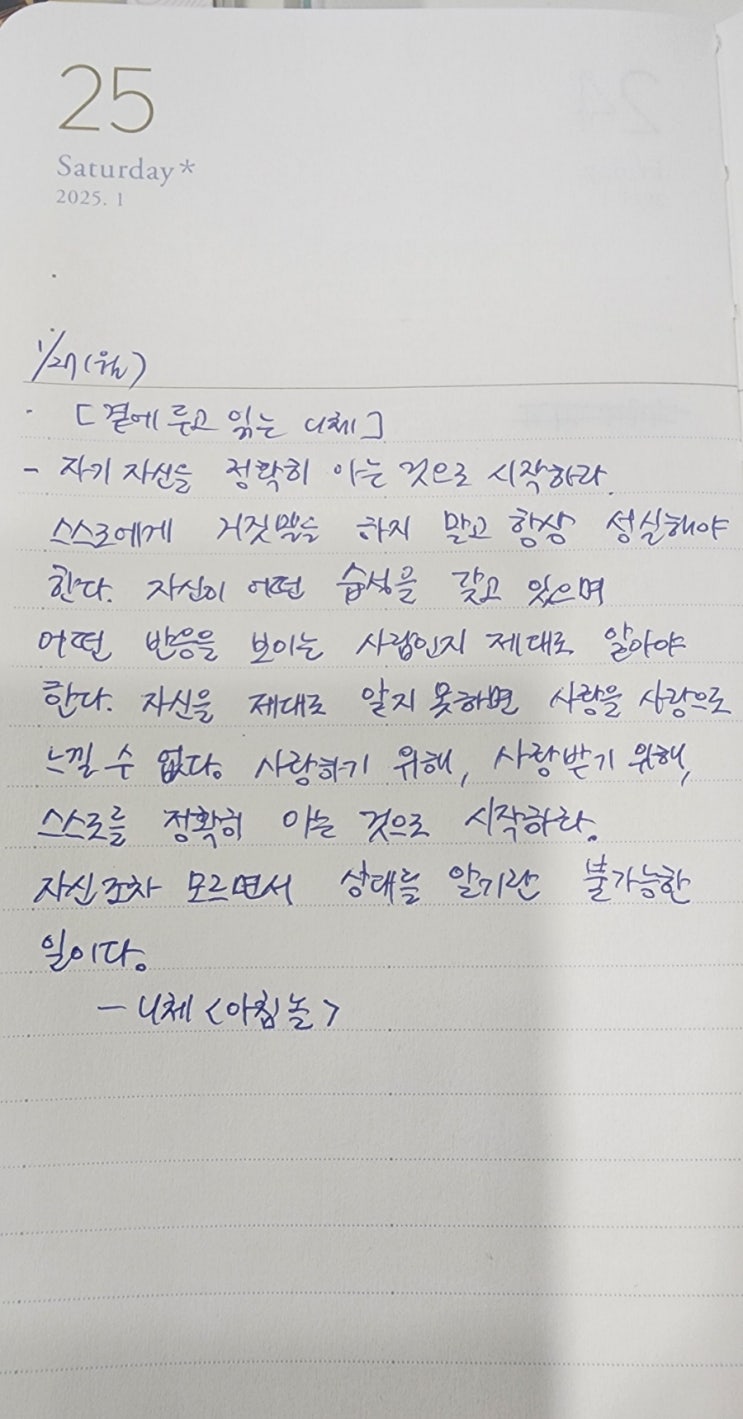 25
Saturday*
2025. 1
1/27(월)
· [곁에 두고 읽는 니체]
- 자기 자신을 정확히 아는 것으로 시작하라.
스스로에게 거짓말을 하지 말고 항상 성실해야
한다. 자신이 어떤 습성을 갖고 있으며
어떤 반응을 보이는 사람인지 제대로 알아야
한다. 자신을 제대로 알지 못하면 사랑을 사랑으로
느낄 수 없다. 사랑하기 위해, 사랑받기 위해,
스스로를 정확히 아는 것으로 시작하라.
자신조차 모르면서 상대를 알기란 불가능한
일이다.
- 니체 <아침놀>